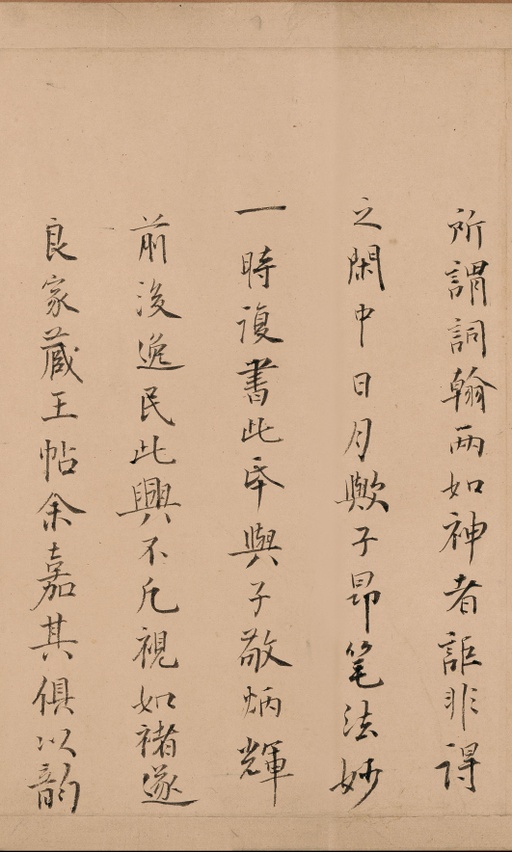 所謂詞翰兩如神者詎非得
之閑中日月歟子昂筆法妙
一時復書此本與子敬炳輝
前後逸民此興不凡視如褚遂
良家藏王帖余嘉其俱以韵